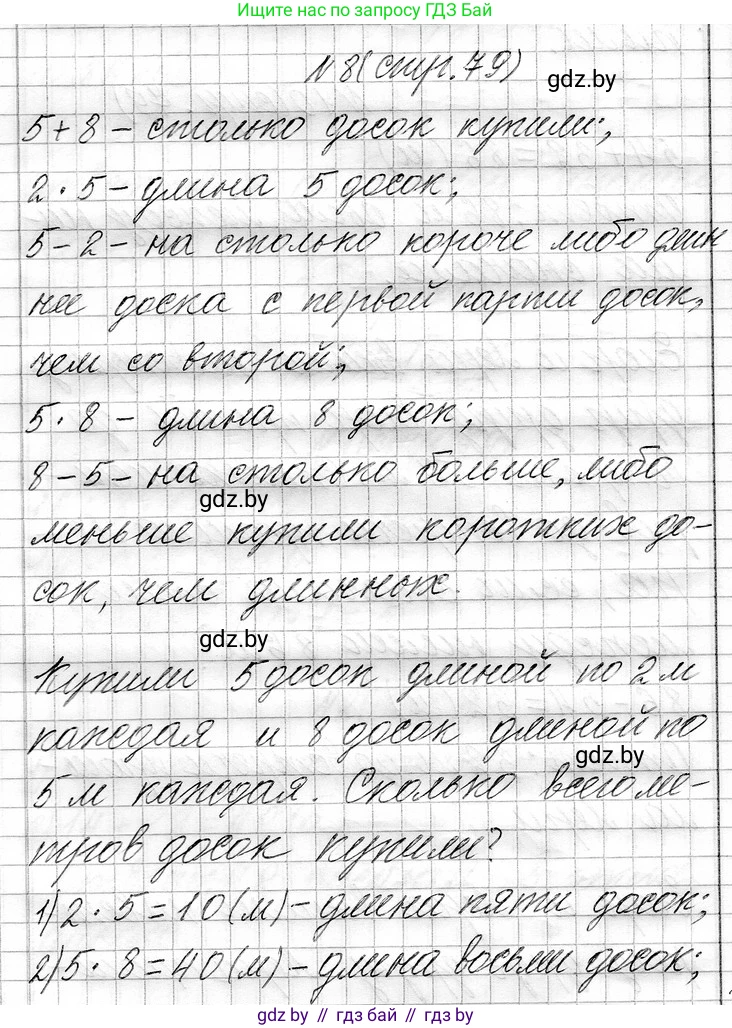 Ищите нас по запросу ГДЗ Бай
№8(стр.79)
gdz.by
5+8 – столько досок купили;
2 · 5 – длина 5 досок;
5 – 2 – на столько короче либо длин
нее доска с первой партии досок,
чем со второй;
5 · 8 – длина 8 досок;
8 – 5 – на столько больше, либо
gdz.by
меньше купили коротких до-
сок, чем длинных.
gdz.by
Купили 5 досок длиной по 2 м
каждая и 8 досок длиной по
gdz.by
5 м каждая. Сколько всего ме-
тров досок купили?
1) 2 · 5 = 10 (м) – длина пяти досок;
2) 5 · 8 = 40 (м) – длина восьми досок;
gdz.by // гдз бай // гдз.бай